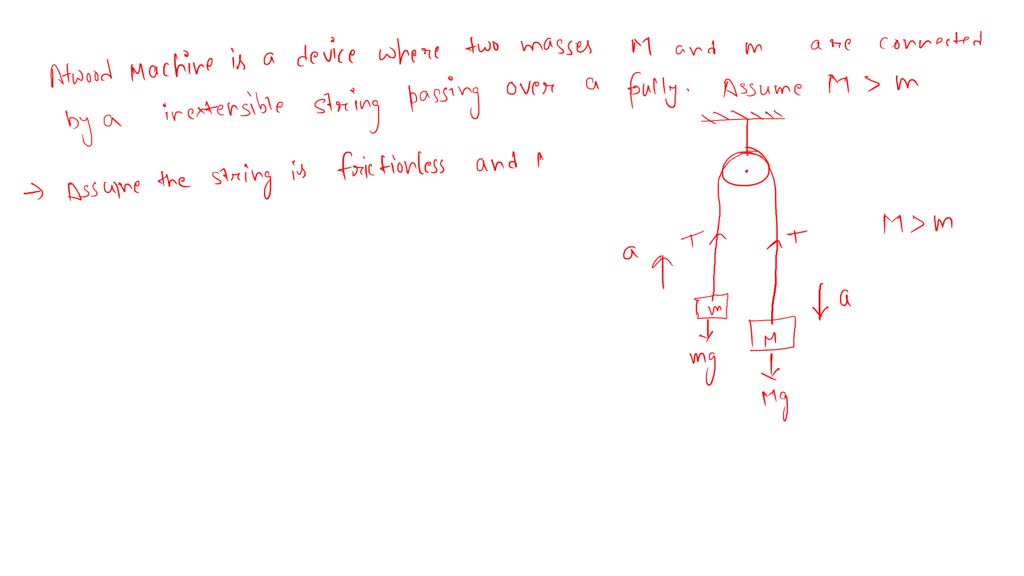 Atwood Machine is a device where two masses M and m are connected
by a inextensible string passing over a pully. Assume M > m
→ Assume the string is frictionless and
M > m
T T
a
a
m
M
mg
Mg